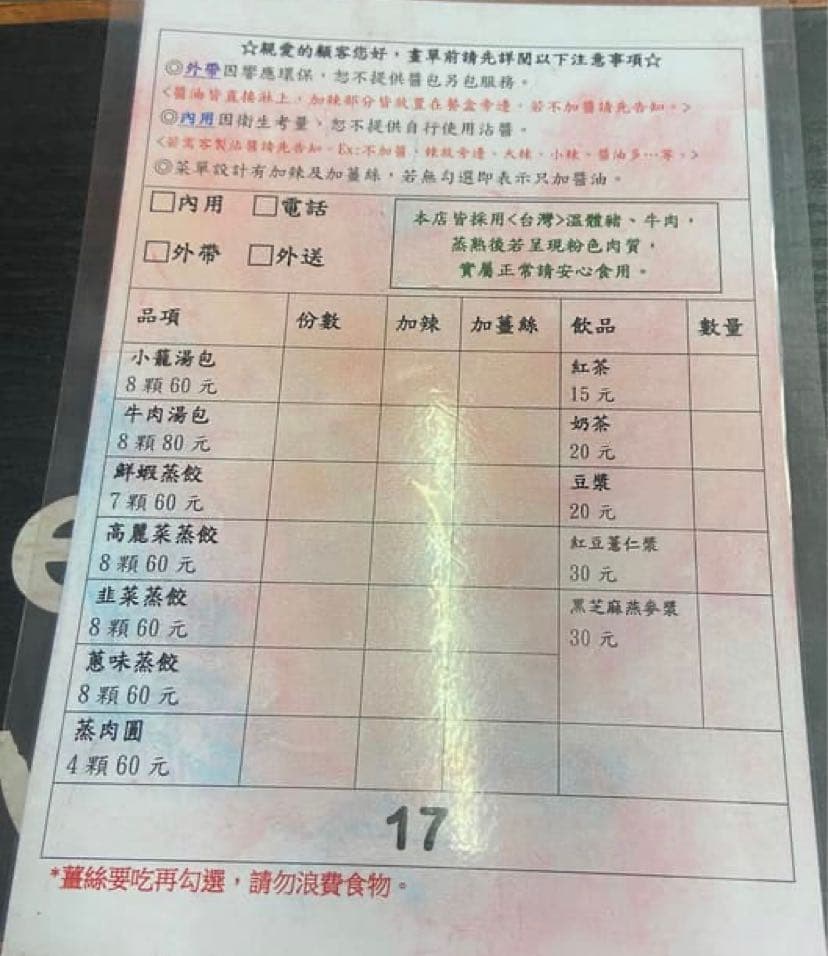 ☆親愛的顧客您好，畫單前請先詳閱以下注意事項☆
◎外帶因響應環保，恕不提供醬包另包服務。
<醬油皆直接淋上，加辣部分皆放置在餐盒旁邊，若不加醬請先告知。>
◎內用因衛生考量、恕不提供自行使用沾醬。
<若需客製沾醬請先告知。Ex:不加醬、辣放旁邊、大辣、小辣、醬油多…等。>
◎菜單設計有加辣及加薑絲，若無勾選即表示只加醬油。
□內用 □電話
□外帶 □外送
本店皆採用<台灣>溫體豬、牛肉，
蒸熟後若呈現粉色肉質，
實屬正常請安心食用。
品項 份數 加辣 加薑絲 飲品 數量
小籠湯包 紅茶
8 顆 60 元 15 元
牛肉湯包 奶茶
8 顆 80 元 20 元
鮮蝦蒸餃 豆漿
7 顆 60 元 20 元
高麗菜蒸餃 紅豆薏仁漿
8 顆 60 元 30 元
韭菜蒸餃 黑芝麻燕參漿
8 顆 60 元 30 元
蔥味蒸餃
8 顆 60 元
蒸肉圓
4 顆 60 元
17
*薑絲要吃再勾選，請勿浪費食物。